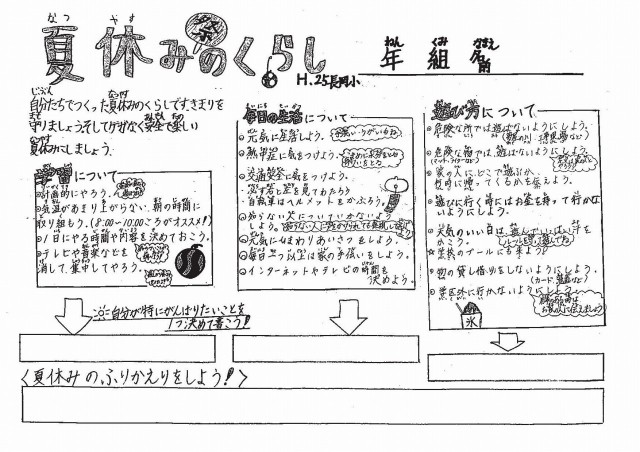 夏休みのくらし
祭
H.25長岡小
年 組 名前
ねん くみ なまえ
自分たちでつくった夏休みのくらしですきまりを
守りましょう。そしてけがなく安全で楽しい
夏休みにしましょう。
学習について
計画的にやろう。
気温があまり上がらない、朝の時間に
取り組もう。(8:00~10:00ごろがオススメ!)
1日にやる時間や内容を決めておこう。
テレビや音楽などを
消して、集中してやろう。
毎日の生活について
元気に生活しよう。
熱中症に気をつけよう。
交通安全に気をつけよう。
・必ず右と左を見てわたろう
・自転車はヘルメットをかぶろう。
知らない人についていかないよう
にしよう。
元気になわまりあいさつをしよう。
毎日1つ以上は家の手伝いをしよう。
インターネットやテレビの時間を
決めよう。
遊び方について
危険な所では遊ばないようにしよう。
危険な物では、遊ばないようにしよう。
家の人に、どこで誰とか、
何時に帰ってくるかを伝えよう。
遊びに行く時にはお金を持って行かな
いようにしよう。
天気のいい日は、遊んでいっぱい汗を
かこう。
☆学校のプールにも来よう!
物の貸し借りをしないようにしよう。
(カード、ゲームなど)
学区外に行かないようにしよう。
氷
自分が特にがんばりたいことを
1つ決めて書こう!
〈夏休みの、ふりかえりをしよう!〉